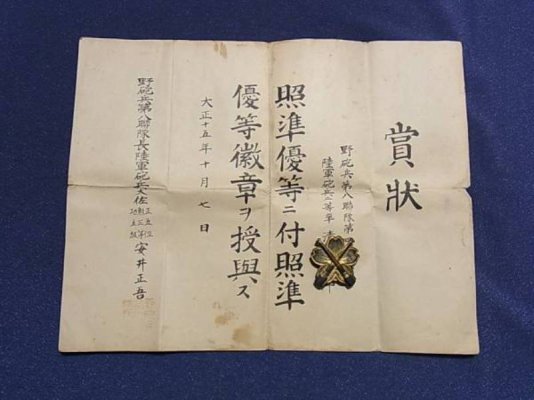 賞狀
野砲兵第八聯隊第
陸軍砲兵二等卒
照準優等ニ付照準
優等徽章ヲ授與ス
大正十五年十月七日
野砲兵第八聯隊長陸軍砲兵大佐正五位勲三等功五級安井正吾